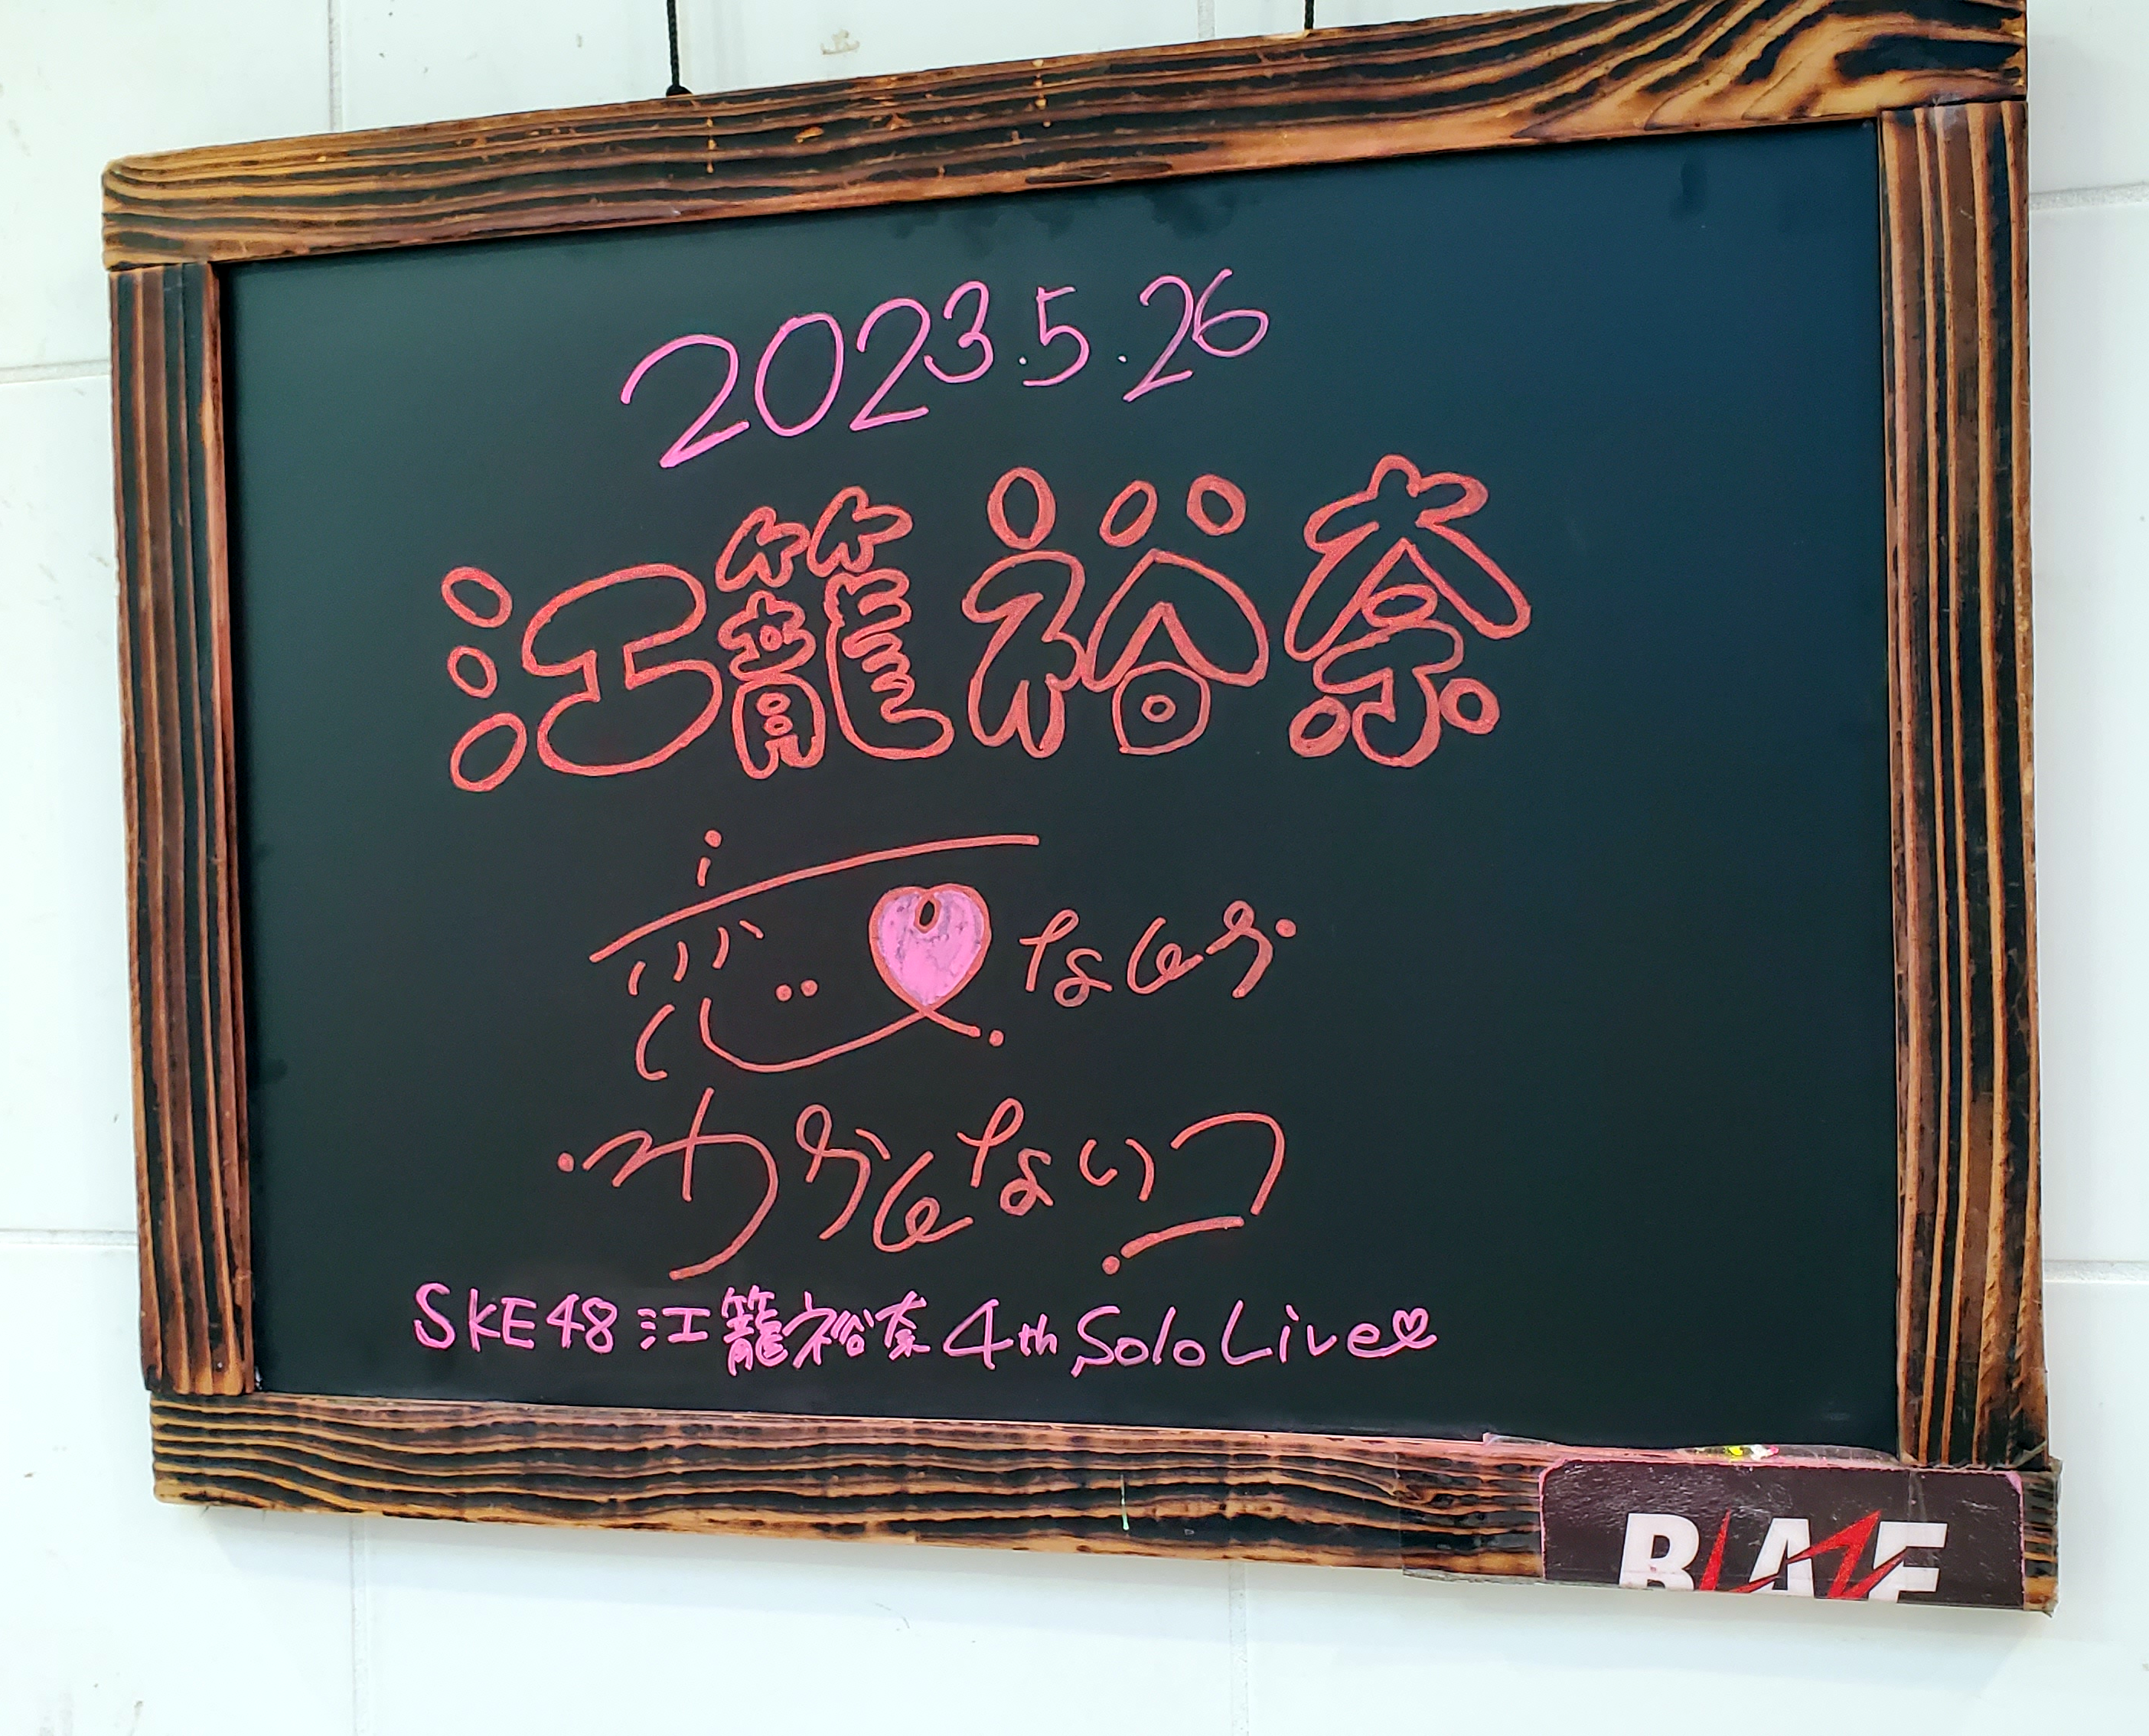 2023.5.26
江籠裕奈
恋なんか
わかんないっ
SKE48 江籠裕奈 4th Solo Live♡
BLAZE